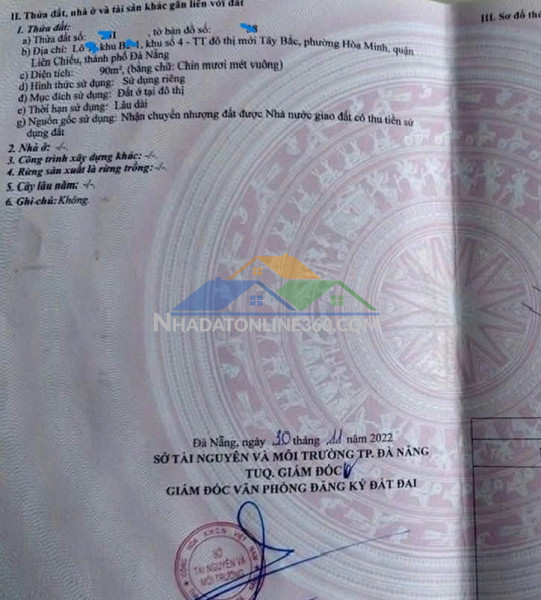 II. Thửa đất, nhà ở và tài sản khác gắn liền với đất
III. Sơ đồ thử
1. Thửa đất:
a) Thửa đất số: 1, tờ bản đồ số: 8
b) Địa chỉ: Lô khu B 1, khu số 4 - TT đô thị mới Tây Bắc, phường Hòa Minh, quận
Liên Chiểu, thành phố Đà Nẵng
c) Diện tích: 90m², (bằng chữ: Chín mươi mét vuông)
d) Hình thức sử dụng: Sử dụng riêng
đ) Mục đích sử dụng: Đất ở tại đô thị
e) Thời hạn sử dụng: Lâu dài
g) Nguồn gốc sử dụng: Nhận chuyển nhượng đất được Nhà nước giao đất có thu tiền sử
dụng đất
2. Nhà ở: -/-
3. Công trình xây dựng khác: -/-
4. Rừng sản xuất là rừng trồng: -/-
5. Cây lâu năm: -/-
6. Ghi chú: Không.
NHADATONLINE360.COM
Đà Nẵng, ngày 30 tháng 11 năm 2022
SỞ TÀI NGUYÊN VÀ MÔI TRƯỜNG TP. ĐÀ NẴNG
TUQ. GIÁM ĐỐC
GIÁM ĐỐC VĂN PHÒNG ĐĂNG KÝ ĐẤT ĐAI
CỘNG HÒA X.H.C.N VIỆT NAM
SỞ
TÀI NGUYÊN VÀ
MÔI TRƯỜNG